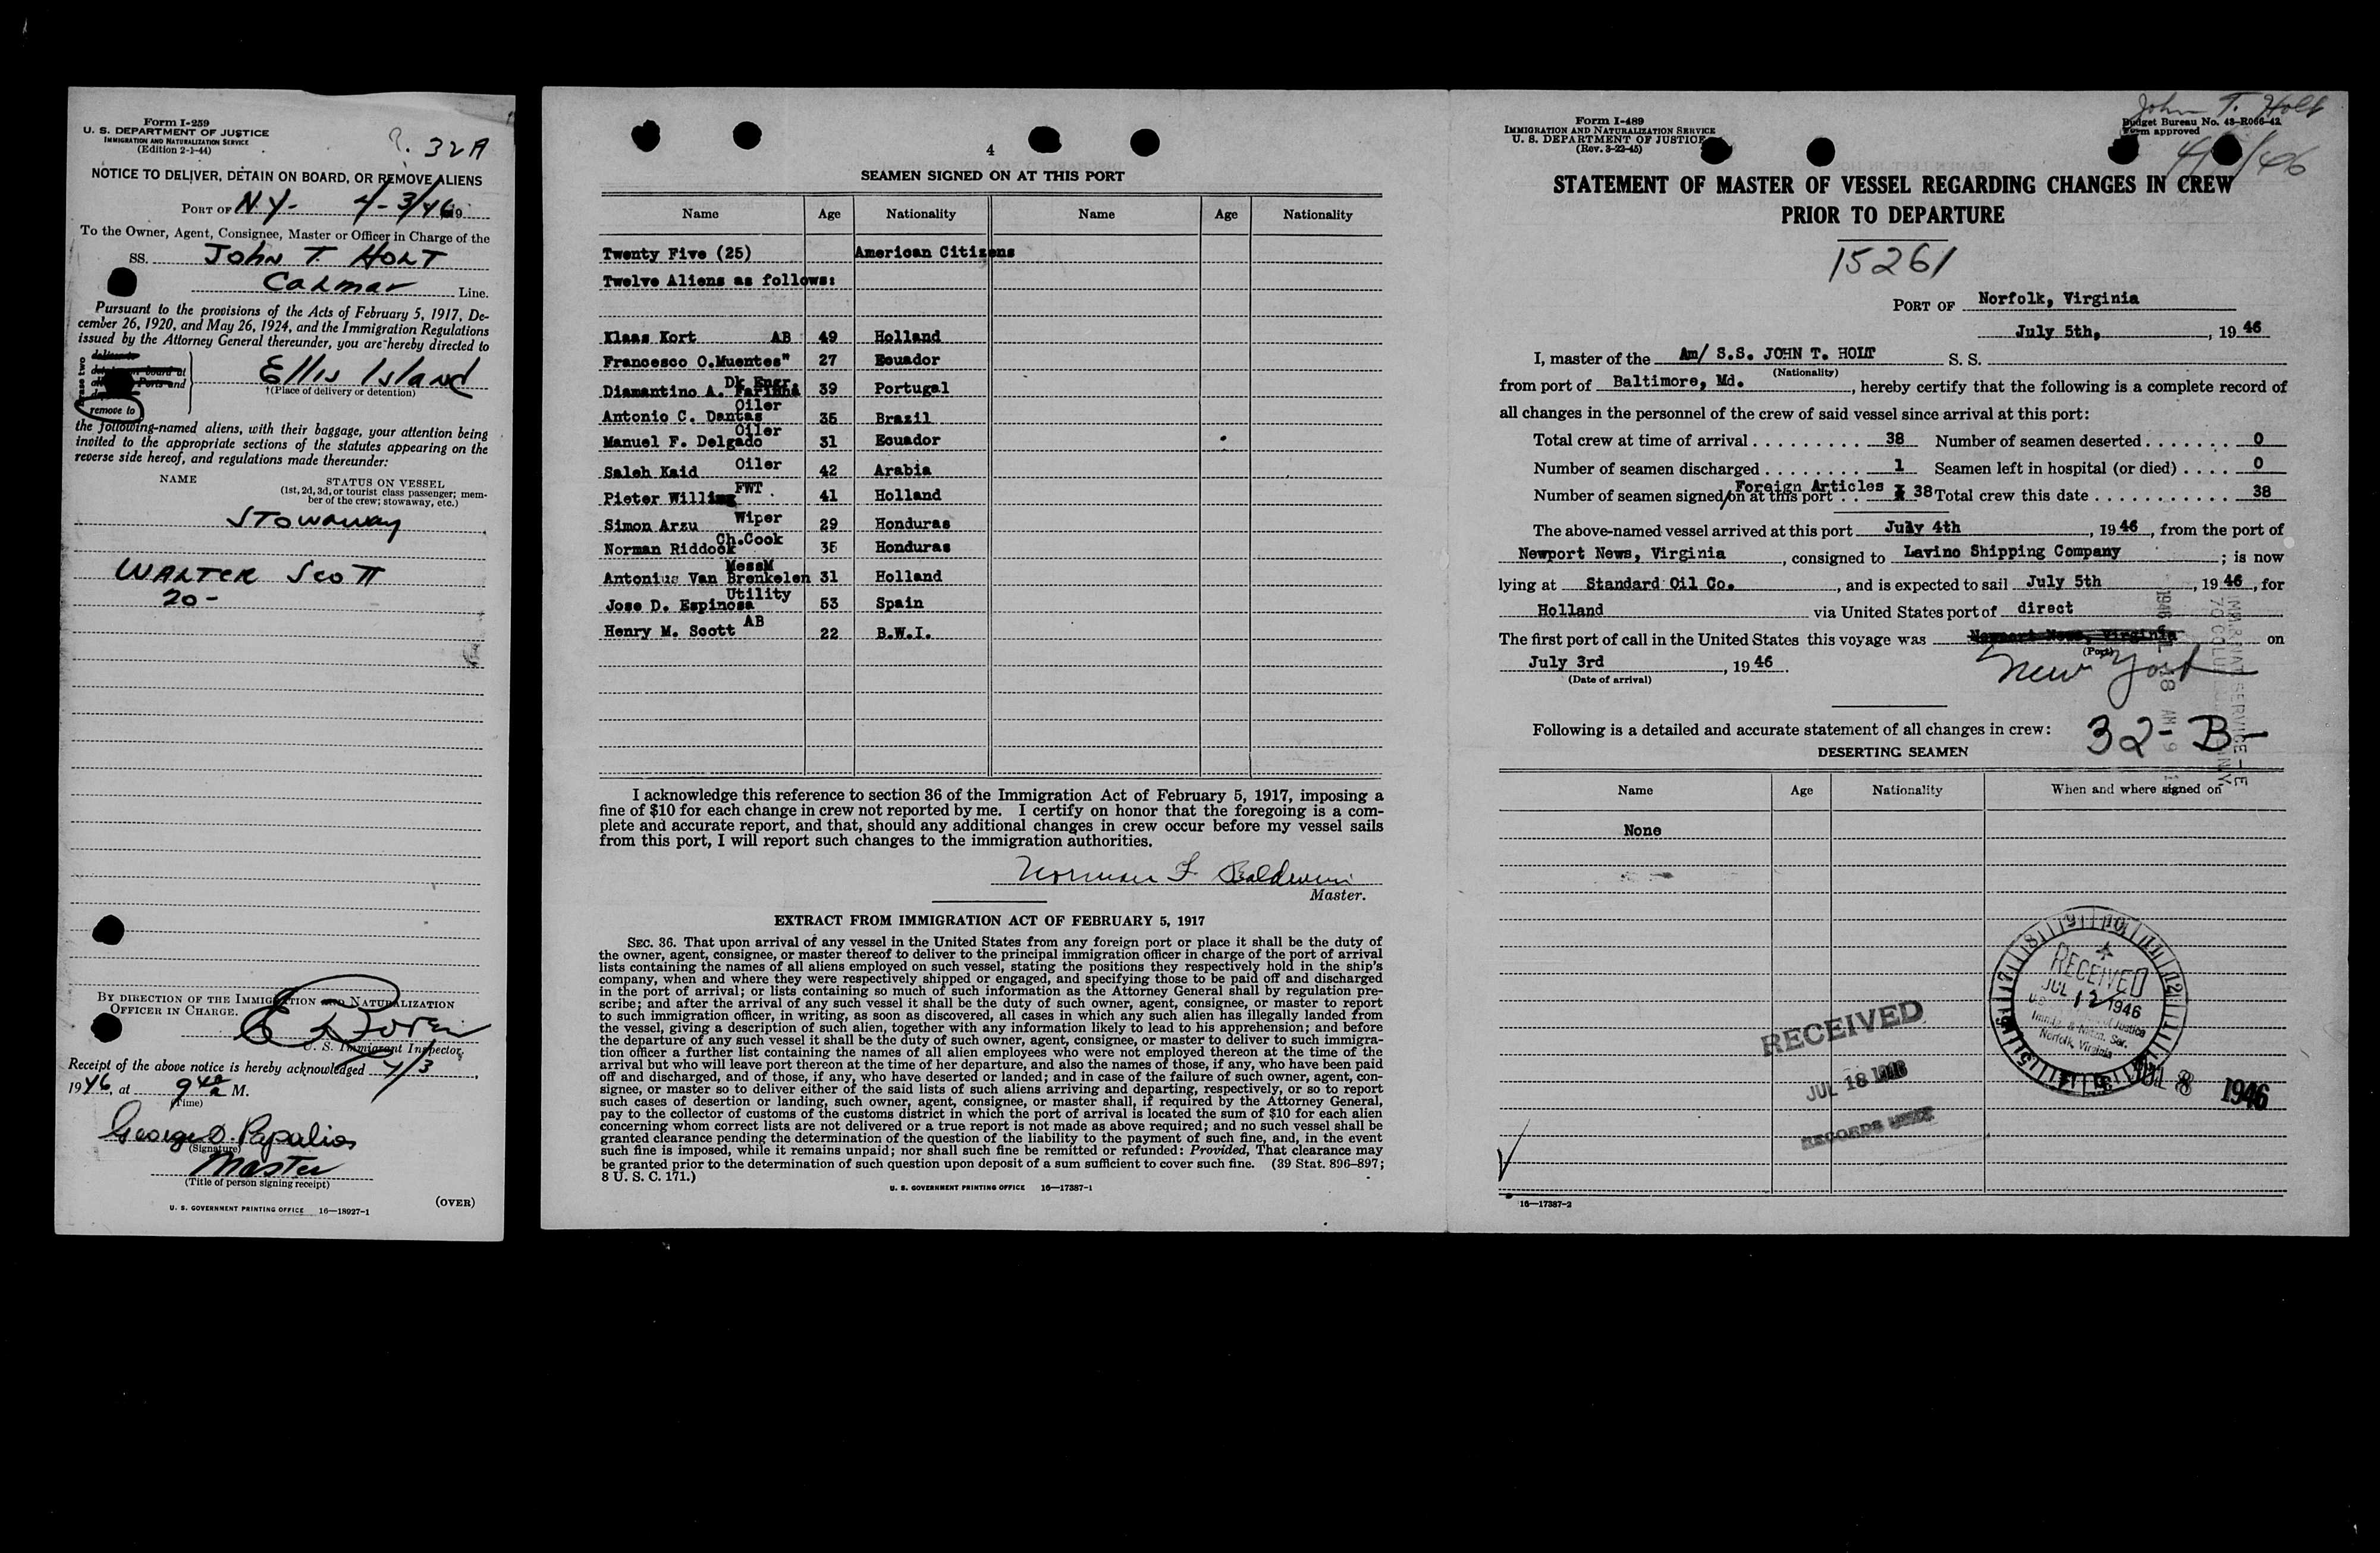 Form I-259
U. S. DEPARTMENT OF JUSTICE
IMMIGRATION AND NATURALIZATION SERVICE
(Edition 2-1-44)
32A
NOTICE TO DELIVER, DETAIN ON BOARD, OR REMOVE ALIENS
PORT OF NY- 4-3/46 19
To the Owner, Agent, Consignee, Master or Officer in Charge of the
SS. JOHN T HOLT
Calmar Line.
Pursuant to the provisions of the Acts of February 5, 1917, De-
cember 26, 1920, and May 26, 1924, and the Immigration Regulations
issued by the Attorney General thereunder, you are hereby directed to
Ellis Island
†(Place of delivery or detention)
remove to
the following-named aliens, with their baggage, your attention being
invited to the appropriate sections of the statutes appearing on the
reverse side hereof, and regulations made thereunder:
NAME STATUS ON VESSEL
(1st, 2d, 3d, or tourist class passenger; mem-
ber of the crew; stowaway, etc.)
STOWAWAY
WALTER SCOTT
20-
BY DIRECTION OF THE IMMIGRATION AND NATURALIZATION
OFFICER IN CHARGE.
U. S. Immigrant Inspector.
Receipt of the above notice is hereby acknowledged 4/3,
1946, at 9 40 a M.
(Time)
George D. Papalios
(Signature)
Master
(Title of person signing receipt)
(OVER)
U. S. GOVERNMENT PRINTING OFFICE 16—18927-1
4
SEAMEN SIGNED ON AT THIS PORT
Name Age Nationality Name Age Nationality
Twenty Five (25) American Citizens
Twelve Aliens as follows:
Klaas Kort AB 49 Holland
Francesco O.Muentes" 27 Ecuador
Diamantino A. Farinha Dk Engr. 39 Portugal
Antonio C. Dantas Oiler 35 Brazil
Manuel F. Delgado Oiler 31 Ecuador
Saleh Kaid Oiler 42 Arabia
Pieter Willing FWT. 41 Holland
Simon Arzu Wiper 29 Honduras
Norman Riddock Ch.Cook 35 Honduras
Antonius Van Brenkelen MessM 31 Holland
Jose D. Espinosa Utility 53 Spain
Henry M. Scott AB 22 B.W.I.
I acknowledge this reference to section 36 of the Immigration Act of February 5, 1917, imposing a
fine of $10 for each change in crew not reported by me. I certify on honor that the foregoing is a com-
plete and accurate report, and that, should any additional changes in crew occur before my vessel sails
from this port, I will report such changes to the immigration authorities.
Norman F. Baldwin
Master.
EXTRACT FROM IMMIGRATION ACT OF FEBRUARY 5, 1917
SEC. 36. That upon arrival of any vessel in the United States from any foreign port or place it shall be the duty of
the owner, agent, consignee, or master thereof to deliver to the principal immigration officer in charge of the port of arrival
lists containing the names of all aliens employed on such vessel, stating the positions they respectively hold in the ship's
company, when and where they were respectively shipped or engaged, and specifying those to be paid off and discharged
in the port of arrival; or lists containing so much of such information as the Attorney General shall by regulation pre-
scribe; and after the arrival of any such vessel it shall be the duty of such owner, agent, consignee, or master to report
to such immigration officer, in writing, as soon as discovered, all cases in which any such alien has illegally landed from
the vessel, giving a description of such alien, together with any information likely to lead to his apprehension; and before
the departure of any such vessel it shall be the duty of such owner, agent, consignee, or master to deliver to such immigra-
tion officer a further list containing the names of all alien employees who were not employed thereon at the time of the
arrival but who will leave port thereon at the time of her departure, and also the names of those, if any, who have been paid
off and discharged, and of those, if any, who have deserted or landed; and in case of the failure of such owner, agent, con-
signee, or master so to deliver either of the said lists of such aliens arriving and departing, respectively, or so to report
such cases of desertion or landing, such owner, agent, consignee, or master shall, if required by the Attorney General,
pay to the collector of customs of the customs district in which the port of arrival is located the sum of $10 for each alien
concerning whom correct lists are not delivered or a true report is not made as above required; and no such vessel shall be
granted clearance pending the determination of the question of the liability to the payment of such fine, and, in the event
such fine is imposed, while it remains unpaid; nor shall such fine be remitted or refunded: Provided, That clearance may
be granted prior to the determination of such question upon deposit of a sum sufficient to cover such fine. (39 Stat. 896-897;
8 U. S. C. 171.)
U. S. GOVERNMENT PRINTING OFFICE 16—17387-1
John T. Holt
Form I-489
IMMIGRATION AND NATURALIZATION SERVICE
U. S. DEPARTMENT OF JUSTICE
(Rev. 3-22-45)
Budget Bureau No. 43-R066-42
Form approved
STATEMENT OF MASTER OF VESSEL REGARDING CHANGES IN CREW
PRIOR TO DEPARTURE
15261
PORT OF Norfolk, Virginia
July 5th, , 19 46
I, master of the Am/ S.S. JOHN T. HOLT S. S.
(Nationality)
from port of Baltimore, Md. , hereby certify that the following is a complete record of
all changes in the personnel of the crew of said vessel since arrival at this port:
Total crew at time of arrival . . . . . . . . . 38 Number of seamen deserted . . . . . . . 0
Number of seamen discharged . . . . . . . . 1 Seamen left in hospital (or died) . . . . 0
Foreign Articles
Number of seamen signed/on at this port . . 38 Total crew this date . . . . . . . . . . . . 38
The above-named vessel arrived at this port July 4th , 19 46 , from the port of
Newport News, Virginia , consigned to Lavino Shipping Company ; is now
lying at Standard Oil Co. , and is expected to sail July 5th , 19 46 , for
Holland via United States port of direct
The first port of call in the United States this voyage was Newport News, Virginia on
(Port)
New York
July 3rd , 19 46 .
(Date of arrival)
Following is a detailed and accurate statement of all changes in crew:
32-B-
DESERTING SEAMEN
Name Age Nationality When and where signed on
None
RECEIVED
JUL 12 1946
Norfolk, Virginia
RECEIVED
JUL 18 1946
1946
16—17387-2